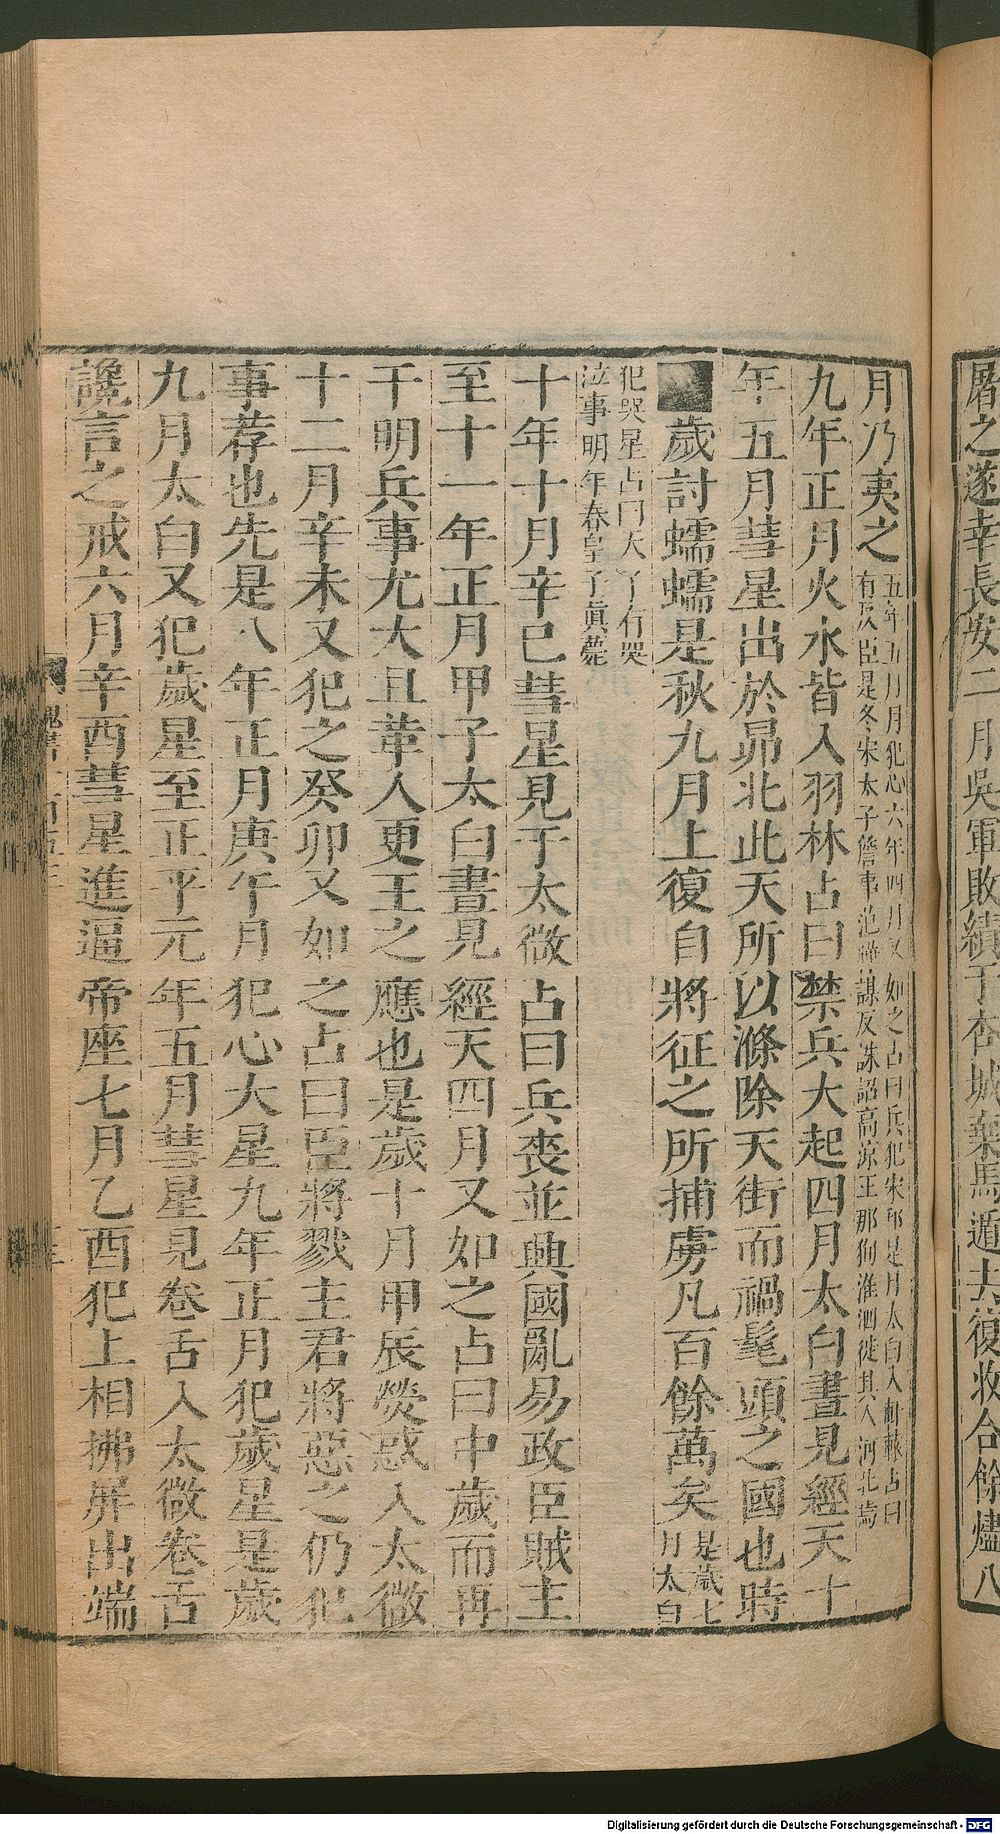 屠之遂幸長安二月吳軍敗績于杏城棄馬遁去復收合餘燼八
月乃夷之五年五月月犯心六年四月又如之占曰兵犯宋邱是月太白入軒轅占曰
有反臣是冬宋太子詹事范曄謀反誅詔高涼王那徇淮泗徙其人河北焉
九年正月火水皆入羽林占曰禁兵大起四月太白晝見經天十
年五月彗星出於昴北此天所以滌除天街而禍髦頭之國也時
歲討蠕蠕是秋九月上復自將征之所捕虜凡百餘萬矣是歲七
月太白
犯哭星占曰天子有哭
泣事明年春皇子眞薨
十年十月辛巳彗星見于太微占曰兵喪並興國亂易政臣賊主
至十一年正月甲子太白晝見經天四月又如之占曰中歲而再
干明兵事尤大且革人更王之應也是歲十月甲辰熒惑入太微
十二月辛未又犯之癸卯又如之占曰臣將戮主君將惡之仍犯
事荐也先是八年正月庚午月犯心大星九年正月犯歲星是歲
九月太白又犯歲星至正平元年五月彗星見卷舌入太微卷舌
讒言之戒六月辛酉彗星進逼帝座七月乙酉犯上相拂屏出端
Digitalisierung gefördert durch die Deutsche Forschungsgemeinschaft - DFG